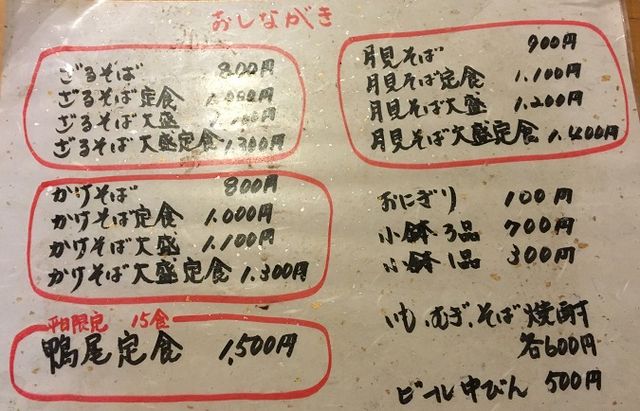 おしながき
ざるそば 800円
ざるそば定食 1.000円
ざるそば大盛 1.100円
ざるそば大盛定食 1.300円
かけそば 800円
かけそば定食 1.000円
かけそば大盛 1.100円
かけそば大盛定食 1.300円
平日限定 15食
鴨尾定食 1,500円
月見そば 900円
月見そば定食 1.100円
月見そば大盛 1.200円
月見そば大盛定食 1.400円
おにぎり 100円
小鉢3品 700円
小鉢1品 300円
いも、むぎ、そば焼酎
各600円
ビール中びん 500円